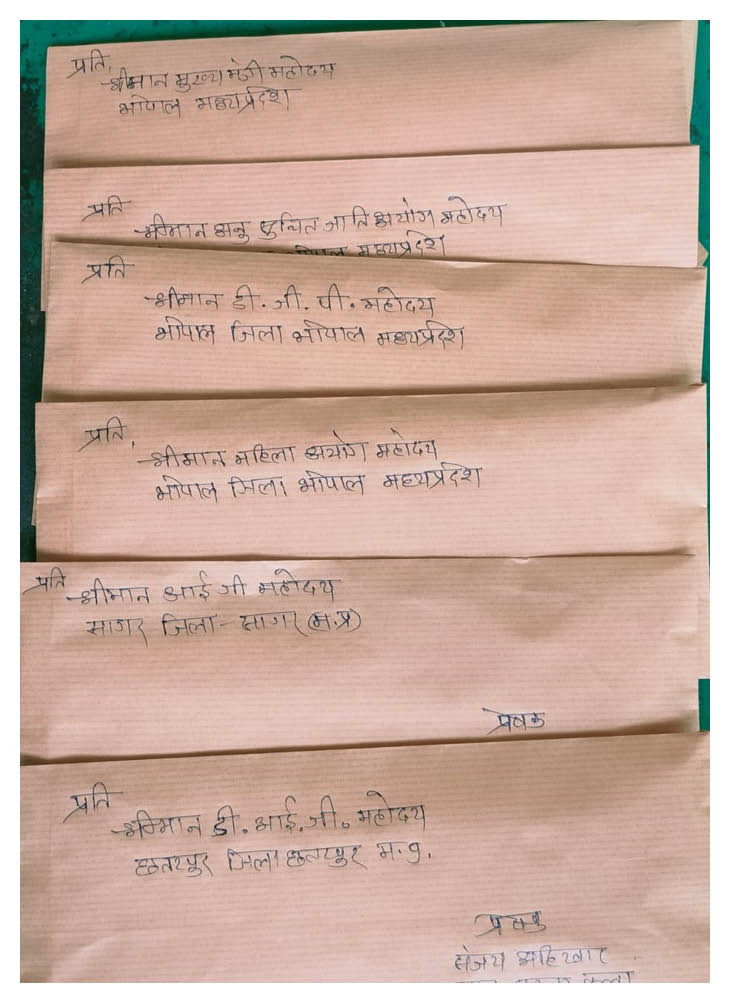 प्रति,
श्रीमान मुख्य मंत्री महोदय
भोपाल मध्यप्रदेश
प्रति
श्रीमान अनु सुचित जाति अयोग महोदय
भोपाल मध्यप्रदेश
प्रति
श्रीमान डी. जी. पी. महोदय
भोपाल जिला भोपाल मध्यप्रदेश
प्रति,
श्रीमान महिला अयोग महोदय
भोपाल जिला भोपाल मध्यप्रदेश
प्रति
श्रीमान आई जी महोदय
सागर जिला - सागर (म.प्र)
प्रेषक
प्रति
श्रीमान डी. आई. जी. महोदय
छतरपुर जिला छतरपुर म.प्र.
प्रेषक
संजय अहिरवार
कला